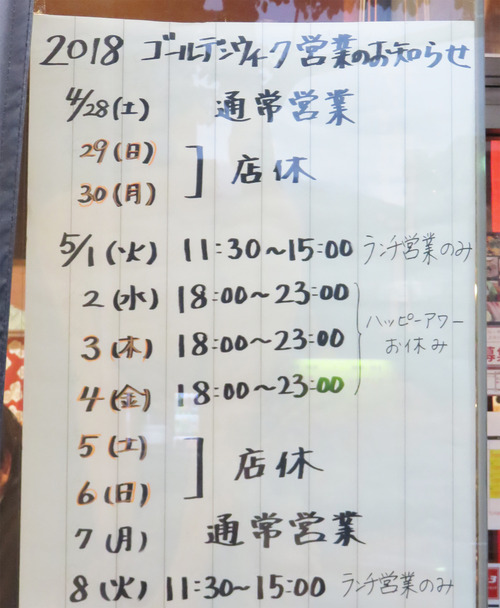 2018 ゴールデンウィーク営業のお知らせ
4/28(土) 通常営業
29(日)
30(月) 店休
5/1(火) 11:30〜15:00 ランチ営業のみ
2(水) 18:00〜23:00
3(木) 18:00〜23:00 ハッピーアワー
お休み
4(金) 18:00〜23:00
5(土)
6(日) 店休
7(月) 通常営業
8(火) 11:30〜15:00 ランチ営業のみ